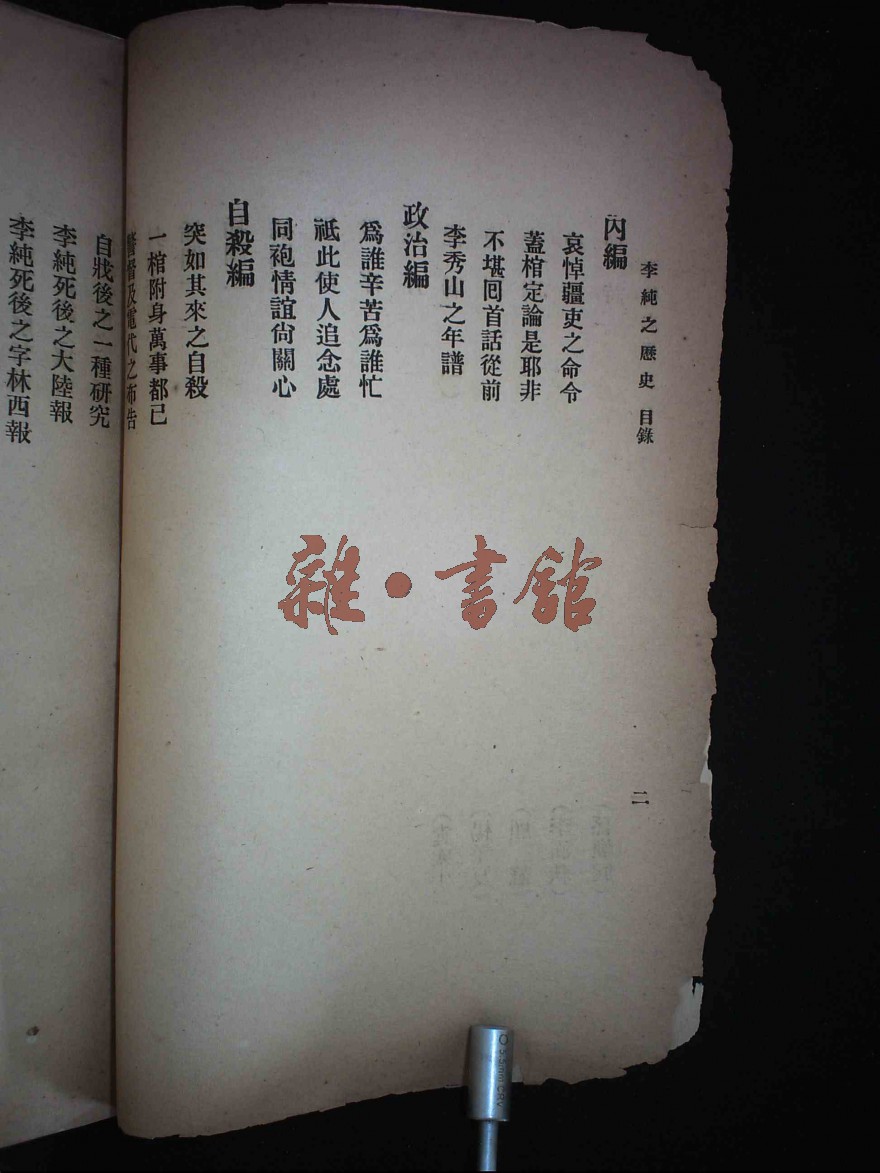 李純之歷史 目錄
二
內編
哀悼疆吏之命令
蓋棺定論是耶非
不堪回首話從前
李秀山之年譜
政治編
爲誰辛苦爲誰忙
祗此使人追念處
同袍情誼尙關心
自殺編
突如其來之自殺
一棺附身萬事都已
督及電代之布告
自戕後之一種硏究
李純死後之大陸報
李純死後之字林西報
雜·書館
5.5mm CRV